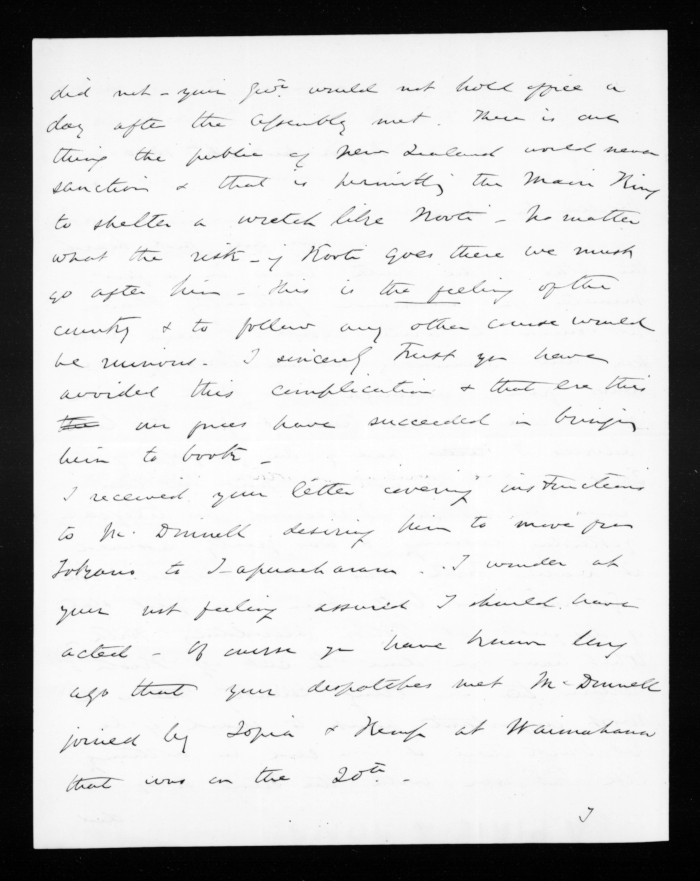 did not - your Govt. would not hold office a
day after the Assembly met. There is one
thing the public of New Zealand would never
sanction & that is permitting the Maori King
to shelter a wretch like Kooti - No matter
what the risk - if Kooti goes there we must
go after him - This is the feeling of the
country & to follow any other course would
be ruinous - I sincerely trust you have
avoided this complication & that ere this
the our forces have succeeded in bringing
him to book -
I received your letter covering instructions
to McDonnell desiring him to move from
Tokano to Tapuaeharuru . I wonder at
your not feeling assured I should have
acted - Of course you have known long
ago that your despatches met McDonnell
joined by Topia & Kemp at Waimahana
that was on the 20th. -
I